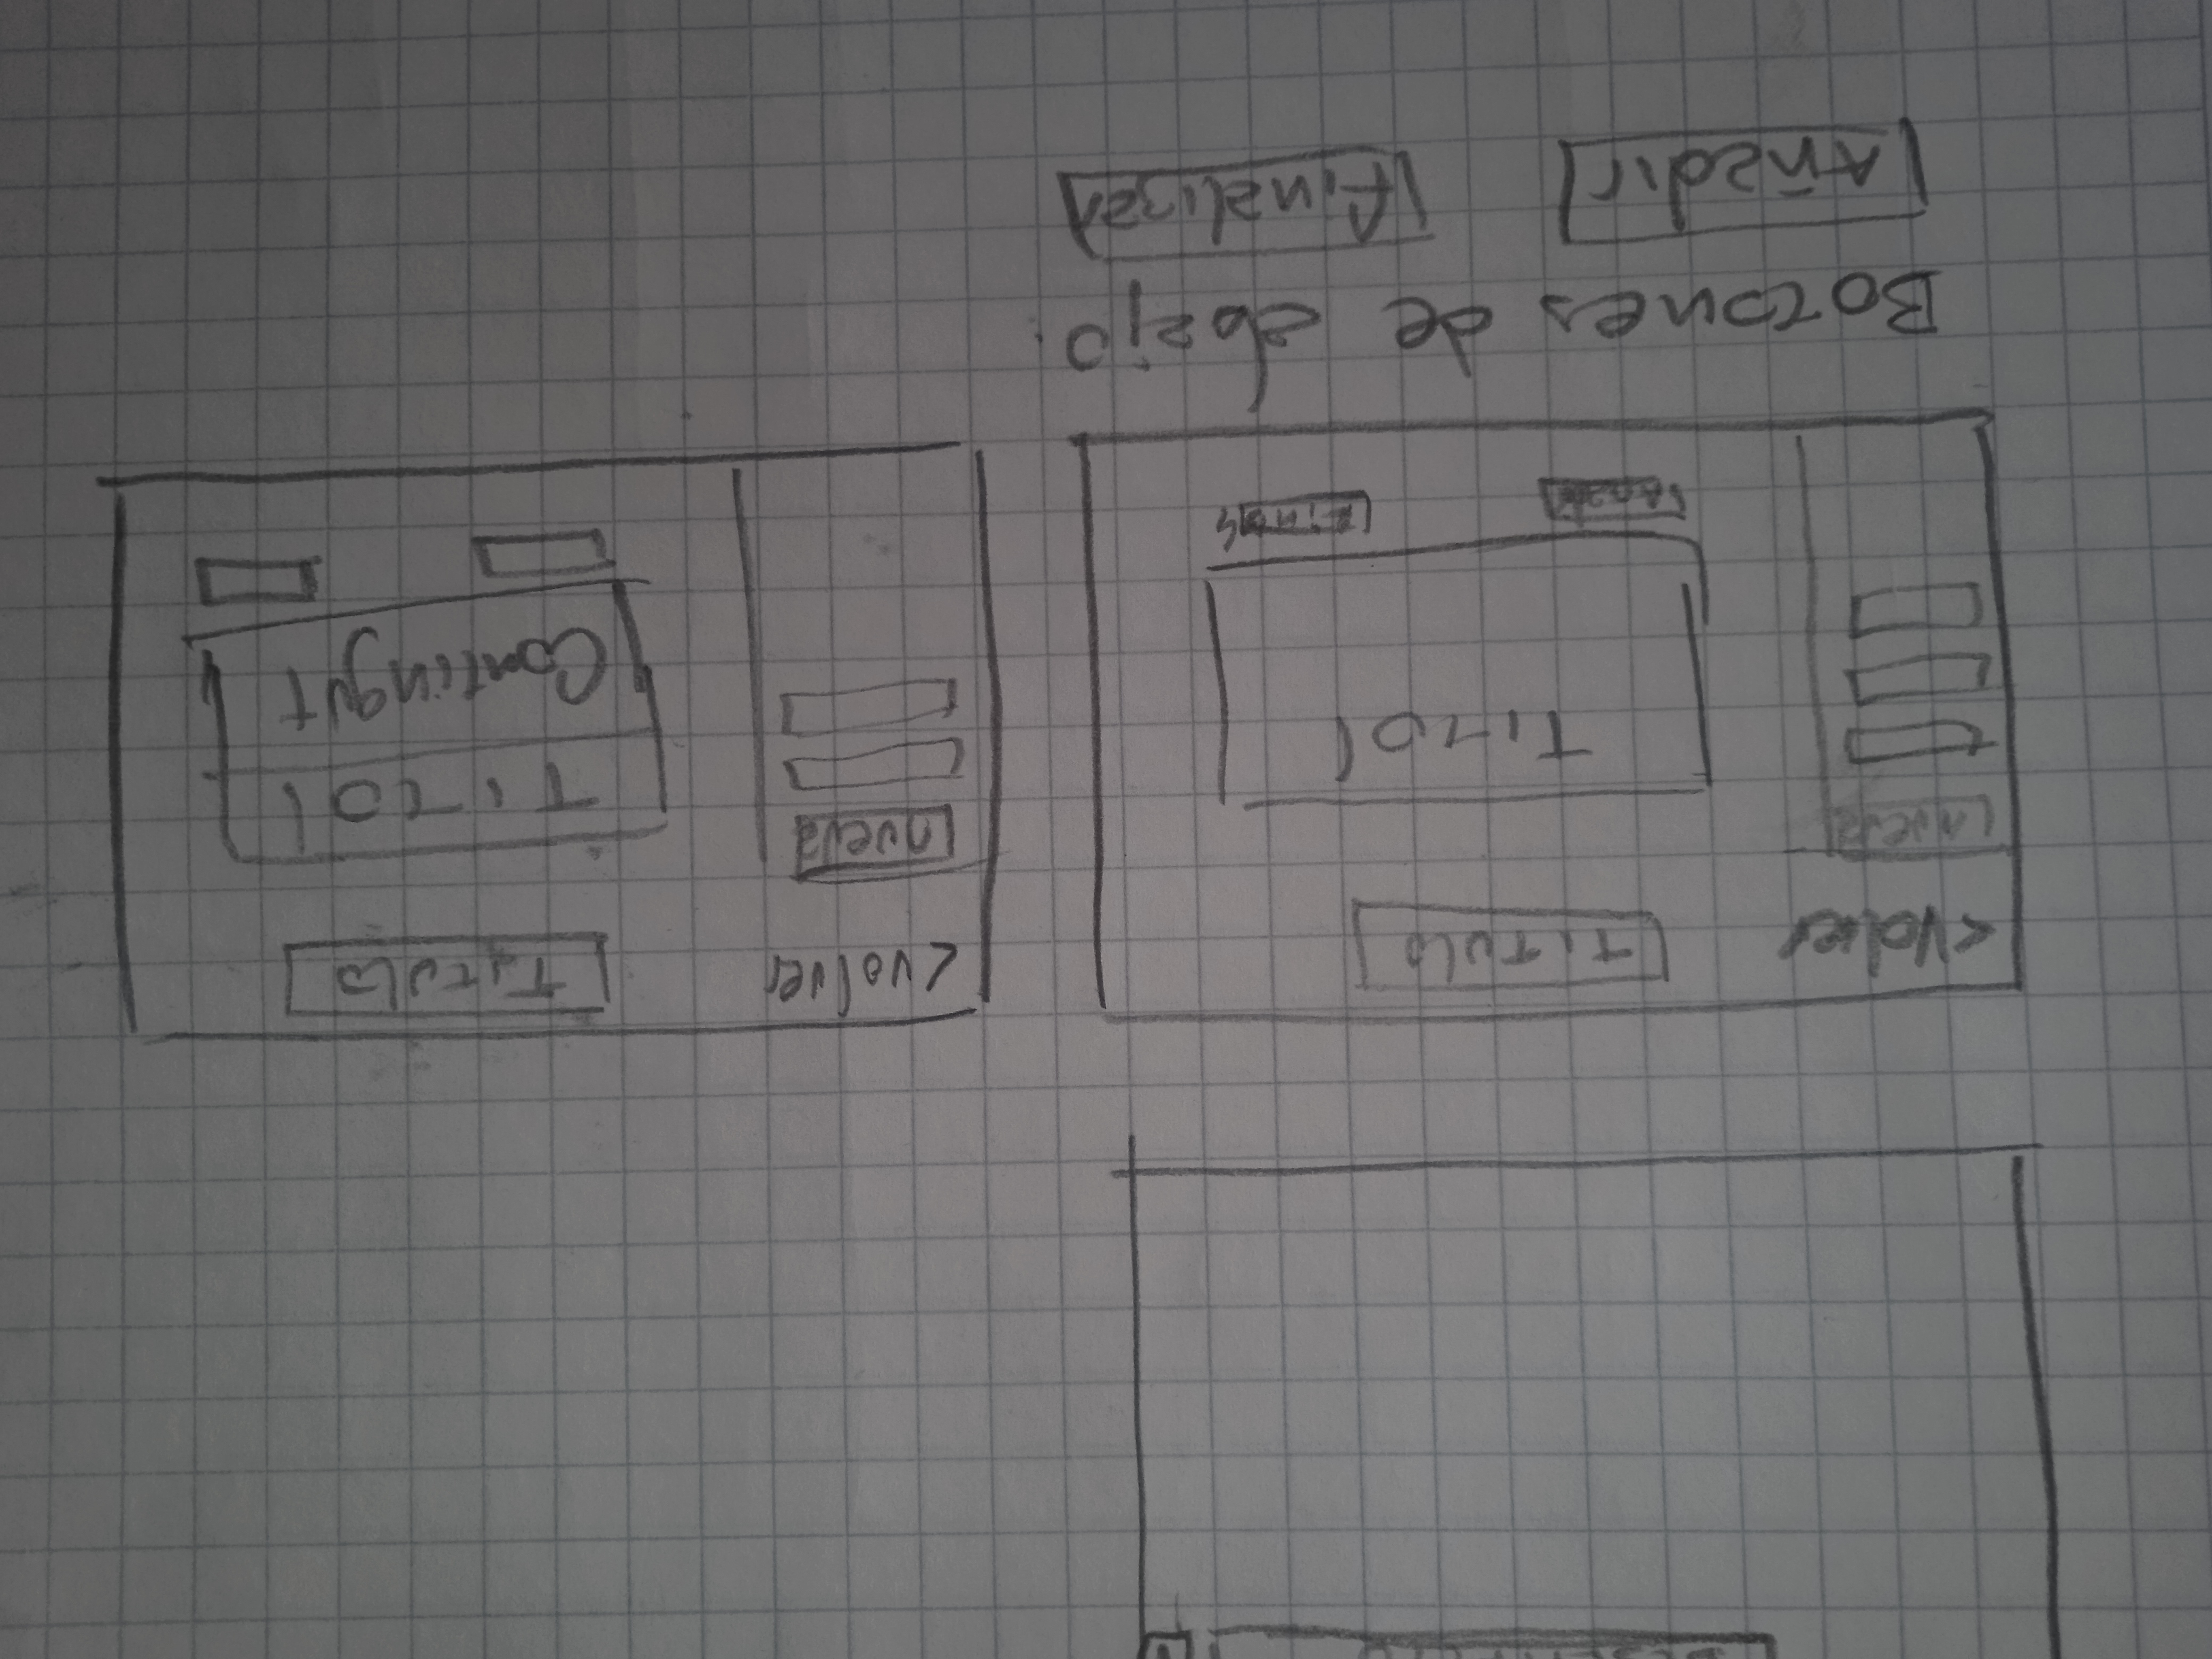 <Volver
TITULO
nueva
TITOl
<volver
TITULO
nueva
TITOl
Contingut
Botones de abajo.
Añadir
finalizar